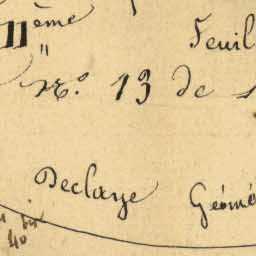 11ème Feuil
"
N.º 13 de
Declaye Géomé
bis
40